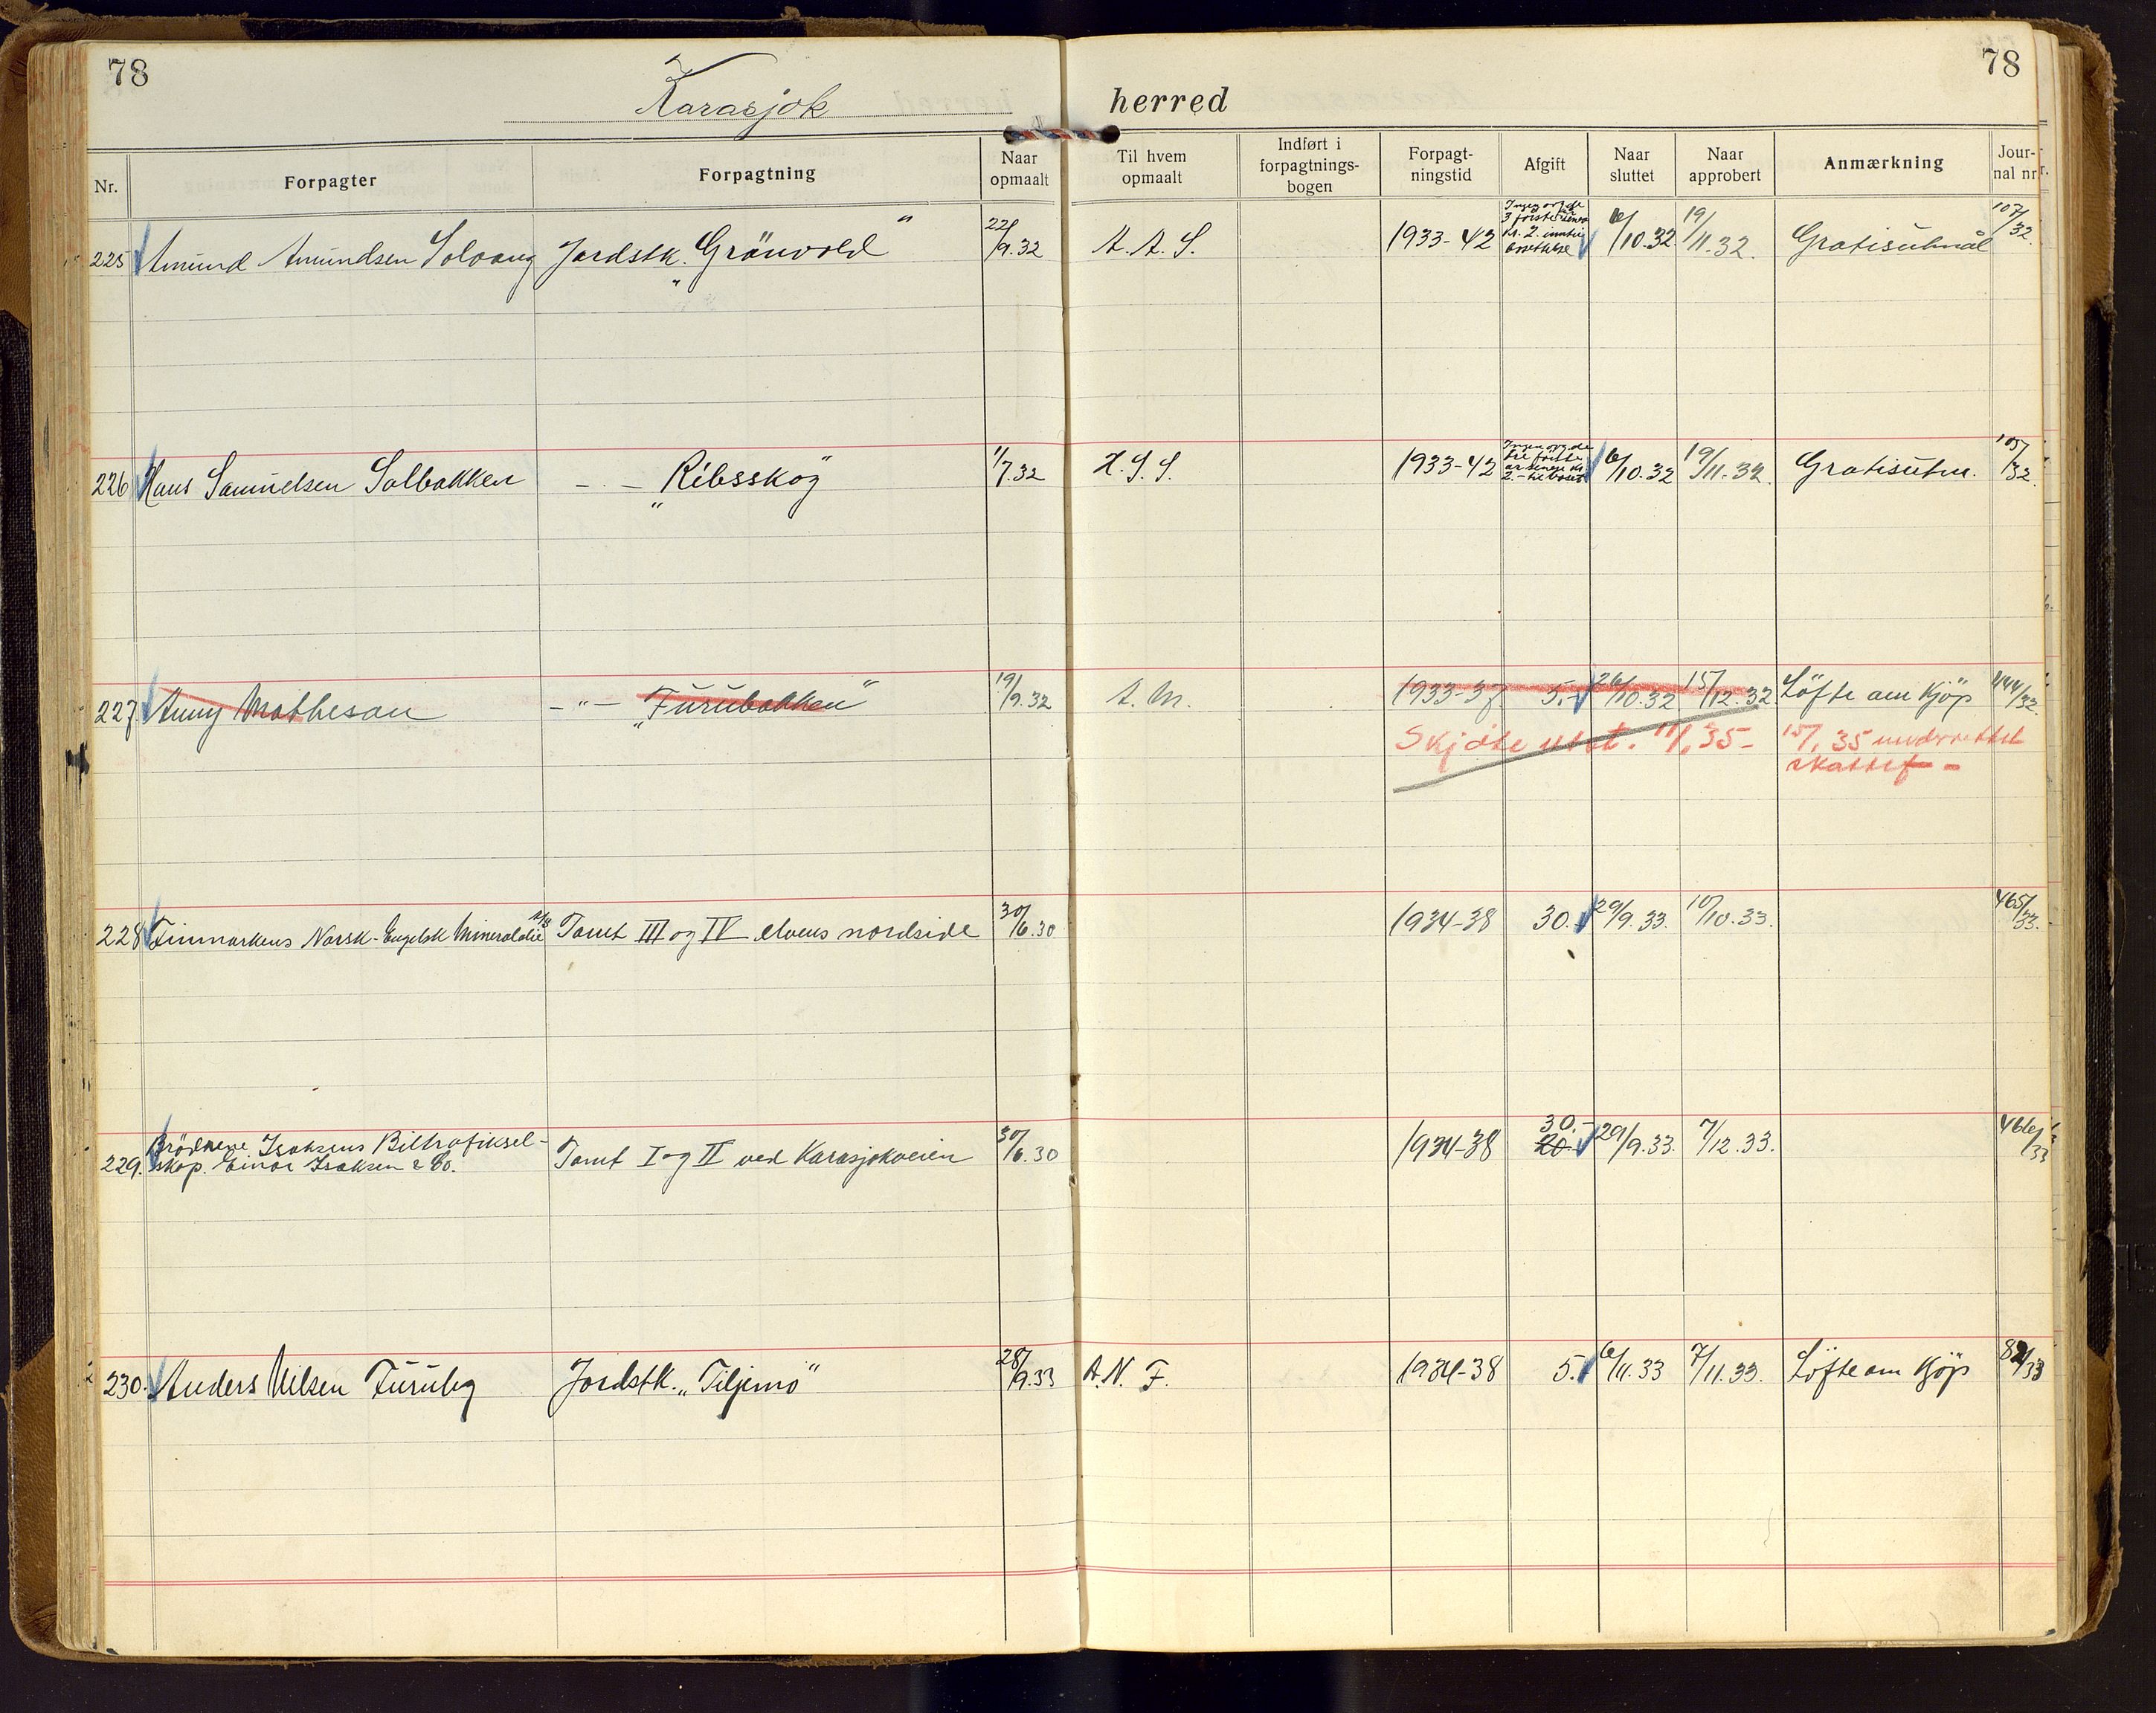 78
78
Karasjok herred
Nr. Forpagter Forpagtning Naar opmaalt Til hvem opmaalt Indført i forpagtnings-bogen Forpagt-ningstid Afgift Naar sluttet Naar approbert Anmærkning Jour-nal nr.
225 Amund Amundsen Solvang Jordstk. „Grönvold“ 22/9.32 A. A. S. 1933-42 3 første kr. 2. 6/10.32 19/11.32. Gratisutmål 107/32.
226 Hans Samuelsen Solbakken - „ - „Ribsskog“ 11/7.32 H. S. S. 1933-42 6/10.32 19/11.32. Gratisutm. 105/32.
227. Anny Mathesen - „ - „Furubakken“ 19/9.32 A. M. 1933-37 5.- 26/10.32 15/12.32 Löfte om Kjöp 444/32.
Skjøte utst. 11/1 35 - 15/1 35 underrettet
skattef -
228 Finmarkens Norsk-Engelsk Mineralolie A/S Tomt III og IV elvens nordside 30/6.30 1934-38 30.- 29/9.33. 10/10.33. 465/33.
229. Brödrene Isaksens Biltrafiksel-
skap. Einar Isaksen & Co. Tomt I og II ved Karasjokveien 30/6.30 1934-38 30.- 20.- 29/9.33. 7/12.33. 466/33
230. Anders Nilsen Furuly Jordstk. „Tiljemo“ 28/9.33 A. N. F. 1934-38 5.- 6/11.33 7/11.33. Löfte om Kjöp /33